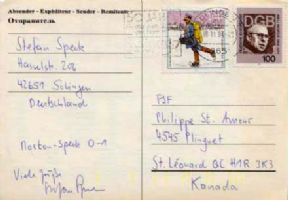 Absender - Expéditeur - Sender - Remitente
Отправитель
Stefan Sperk
Hasselstr. 206
42651 Solingen
Deutschland
Norton-Sperk 0-1
Viele Grüße
DGB
100
PSF
Philippe St.
4545 Plinguet
St. Léonard QC H1R 3K3
Kanada